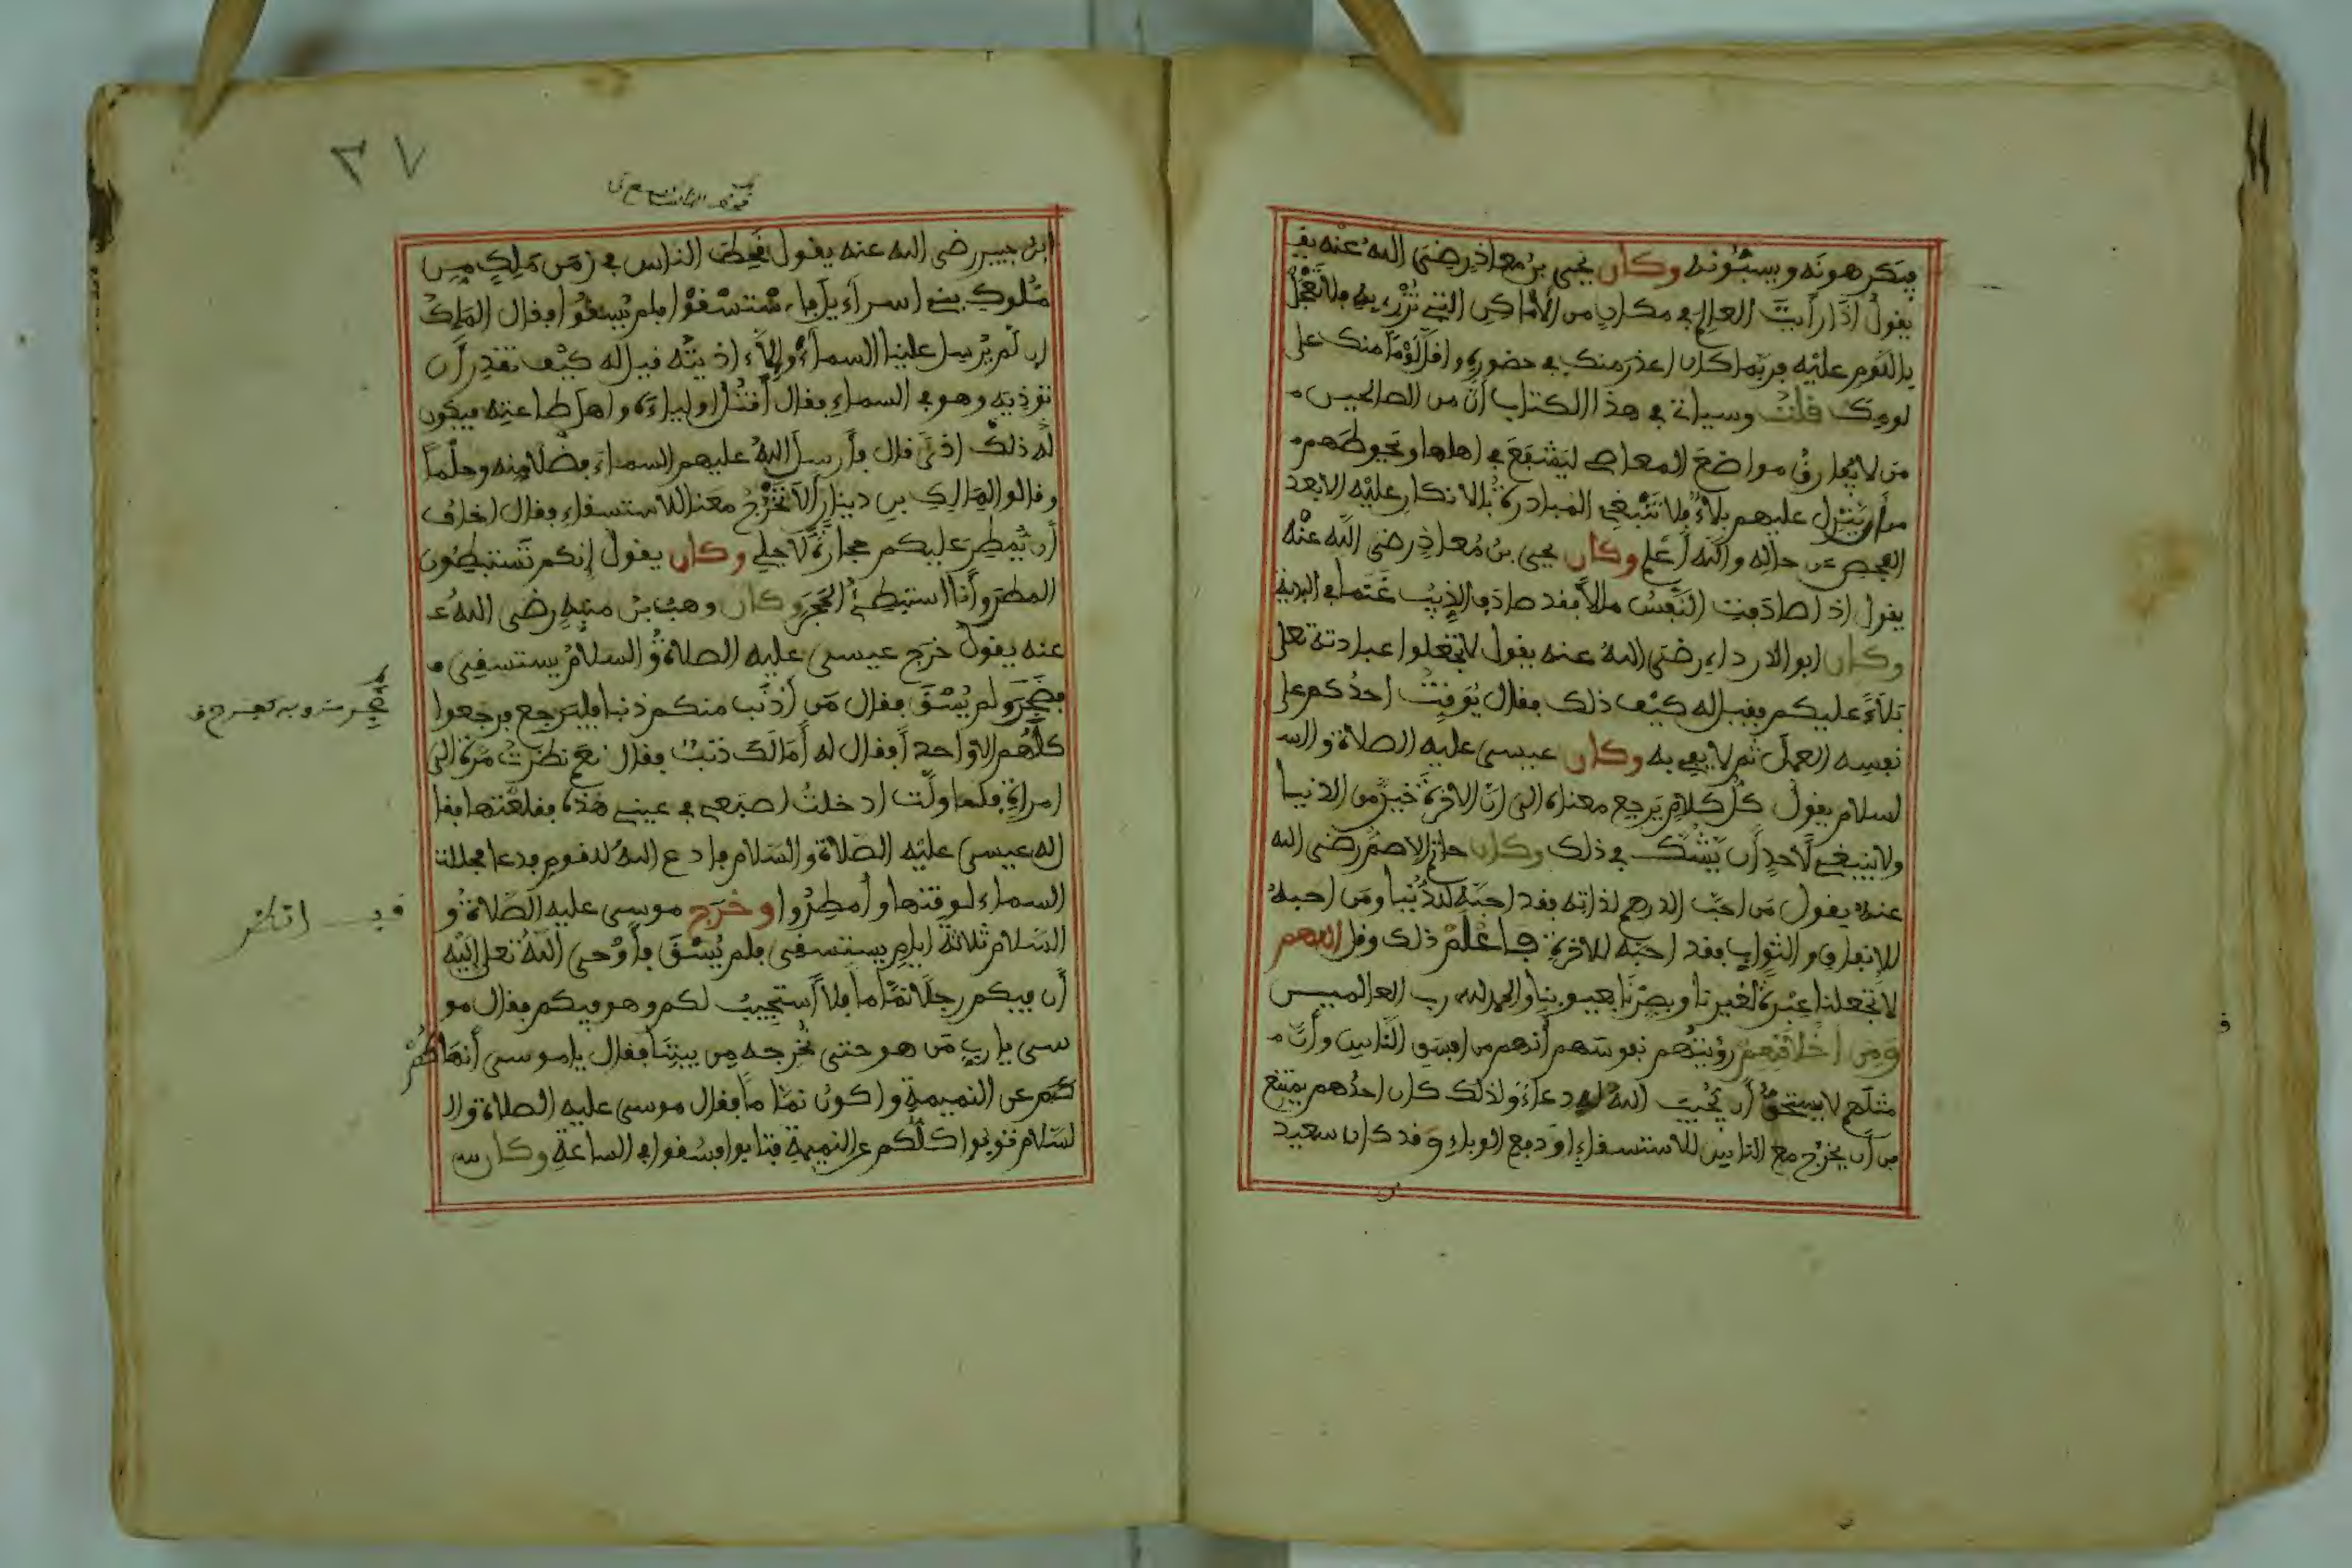 فيكرهونه ويسبّونه وكان يحيى بن معاذ رضي الله عنه يقـ
يقول اذا رأيت العالم في مكان من الأماكن التي تزري به فلا تعجل
باللوم عليه فربما كان اعذر منك في حضوره وأقل لوما منك على
لومك قلت وسياتي في هذا الكتاب أن من الصالحين
من لا يفارق مواضع المعاصي ليشفع في اهلها ويحوطهم
من أن ينزل عليهم بلاء فلا تنبغي المبادرة بالانكار عليه الا بعد
الفحص عن حاله والله أعلم وكان يحيى بن معاذ رضي الله عنه
يقول اذا صادفت النفس ملالا فقد صادف الذيب غنما في البرية
وكان ابو الدرداء رضي الله عنه يقول لا تجعلوا عبادة الله تعلى
بلاء عليكم فقيل له كيف ذلك فقال يوقت احدكم على
نفسه العمل ثم لا يفي به وكان عيسى عليه الصلاة والسـ
لسلام يقول كل كلام يرجع معناه الى ان الاخرة خير من الدنيا
ولا ينبغي لأحد أن يشك في ذلك وكان حاتم الاصم رضي الله
عنه يقول من احب الدرهم لذاته فقد احبه للدنيا ومن احبه
للإنفاق والثواب فقد احبه للاخرة فاعلم ذلك وقل اللهم
لا تجعلنا عبرة لغيرنا وبصرنا بعيوبنا والحمد لله رب العالمين
ومن أخلاقهم رؤيتهم نفوسهم أنهم من افسق الناس وأن
مثلهم لا يستحق أن يجيب الله له دعاء ولذلك كان احدهم يمتنع
من أن يخرج مع الناس للاستسقاء او دفع الوباء وقد كان سعيد
٣٧
ابن جبير رضي الله عنه يقول قحط الناس في زمن ملك من
ملوك بني اسراءيل فاستسقوا فلم يسقوا فقال الملك
ان لم يرسل علينا السماء وإلا اذيته فقيل له كيف تقدر أن
تؤذيه وهو في السماء فقال أقتل اولياءه واهل طاعته فيكون
له ذلك اذى قال فأرسل الله عليهم السماء فضلا منه وحلما
وقالوا لمالك بن دينار ألا تخرج معنا للاستسقاء فقال اخاف
أن تمطر عليكم حجارة لأجلي وكان يقول إنكم تستبطئون
المطر وأنا استبطئ الحجر وكان وهب بن منبه رضي الله عـ
عنه يقول خرج عيسى عليه الصلاة والسلام يستسقي
فضجر ولم يسق فقال من أذنب منكم ذنبا فليرجع فرجعوا
كلهم الا واحدا فقال له أما لك ذنب فقال نعم نظرت مرة الى
امراة فلما ولت ادخلت اصبعي في عيني هذه فقلعتها فقا
له عيسى عليه الصلاة والسلام فادع الله للقوم فدعا فجللت
السماء لوقتها وأمطروا وخرج موسى عليه الصلاة و
السلام ثلاثة ايام يستسقي فلم يسق فأوحى الله تعلى إليه
أن فيكم رجلا نماما فلا أستجيب لكم وهو فيكم فقال مو
سى يا رب من هو حتى نخرجه من بيننا فقال يا موسى أنهاكم
كم عن النميمة واكون نماما فقال موسى عليه الصلاة والـ
لسلام فتوبوا كلكم عن النميمة فتابوا فسقوا في الساعة وكان س